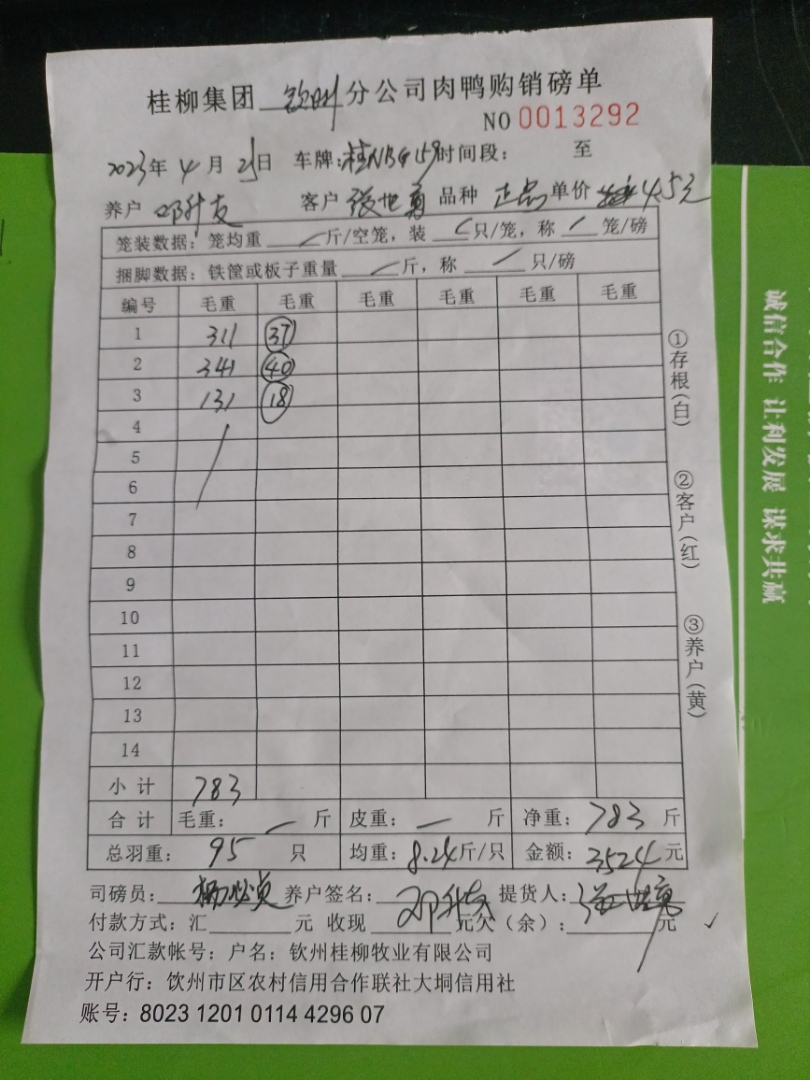 桂柳集团 钦州 分公司肉鸭购销磅单
NO 0013292
2023年 4 月 25日 车牌:桂NBG159 时间段: 至
养户 邓升友 客户 张世勇 品种 正品 单价 4.5元
笼装数据:笼均重 斤/空笼,装 只/笼,称 笼/磅
捆脚数据:铁筐或板子重量 斤,称 只/磅
编号 毛重 毛重 毛重 毛重 毛重 毛重
1 311 37
2 341 40
3 131 18
4
5
6
7
8
9
10
11
12
13
14
小 计 783
合 计 毛重: 斤 皮重: 斤 净重: 783 斤
总羽重: 95 只 均重: 8.24斤/只 金额: 3524 元
司磅员: 养户签名: 邓升友 提货人: 张世勇
付款方式:汇 元 收现 元欠(余): 元
公司汇款帐号:户名:钦州桂柳牧业有限公司
开户行:饮州市区农村信用合作联社大垌信用社
账号:8023 1201 0114 4296 07
①存根(白)
②客户(红)
③养户(黄)
诚信合作 让利发展 谋求共赢